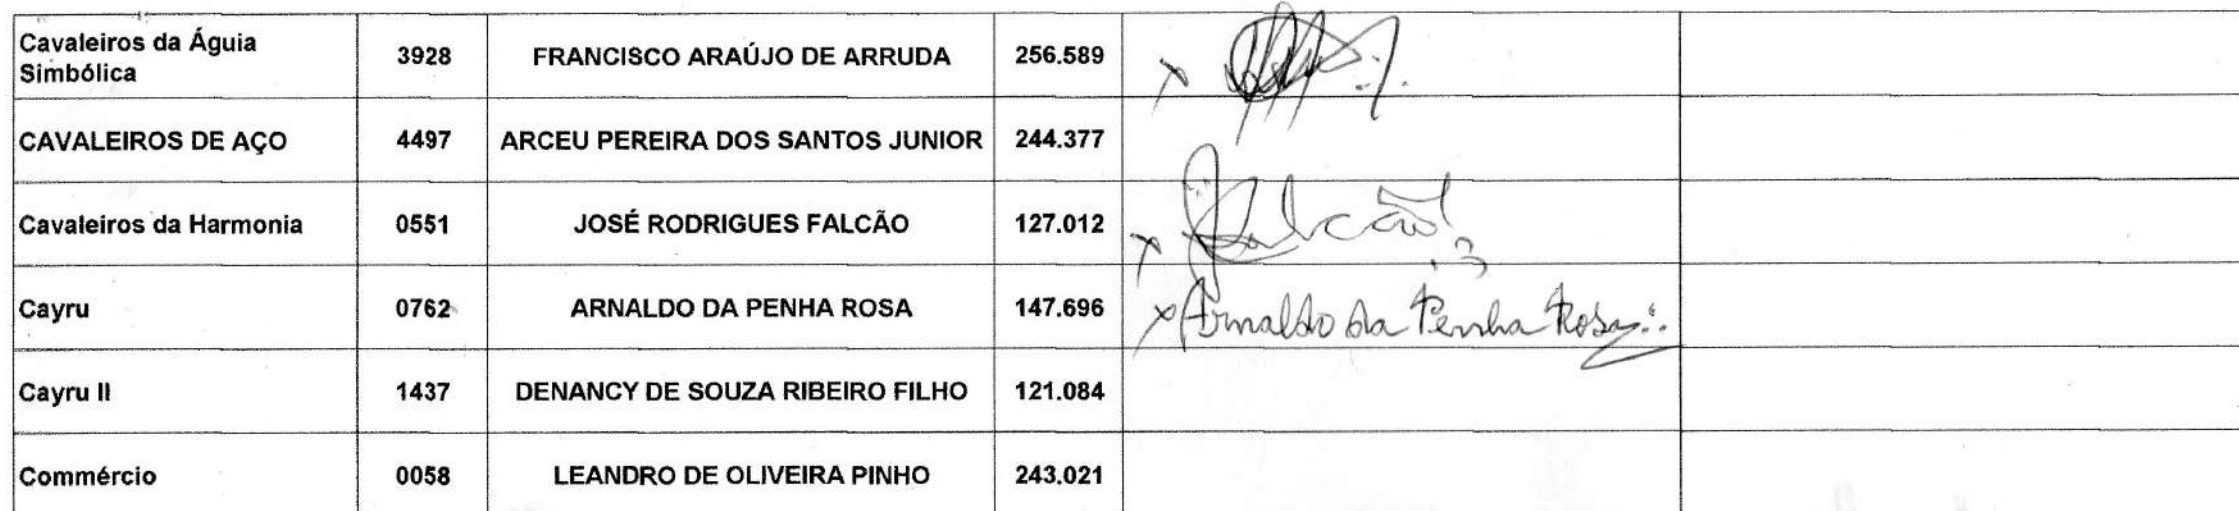 Cavaleiros da Águia
Simbólica 3928 FRANCISCO ARAÚJO DE ARRUDA 256.589 x
CAVALEIROS DE AÇO 4497 ARCEU PEREIRA DOS SANTOS JUNIOR 244.377
Cavaleiros da Harmonia 0551 JOSÉ RODRIGUES FALCÃO 127.012 x Falcão
Cayru 0762 ARNALDO DA PENHA ROSA 147.696 x Arnaldo da Penha Rosa
Cayru II 1437 DENANCY DE SOUZA RIBEIRO FILHO 121.084
Commércio 0058 LEANDRO DE OLIVEIRA PINHO 243.021